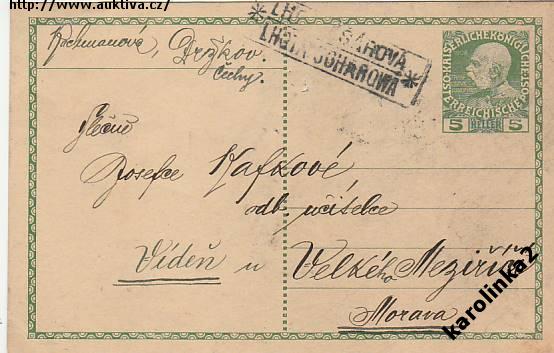 http://www.auktiva.cz/
Kochmanová, Držkov
Čechy.
LHOTA ŠAROVA
LHOTA SCHAROWA
KAISERLICHEKÖNIGLICHE
ÖSTERREICHISCHE POST
5 HELLER 5
Slečně
Josefce Kafkové
odb. učitelce
Vídeň u Velkého Meziříčí
Morava
karolinka2